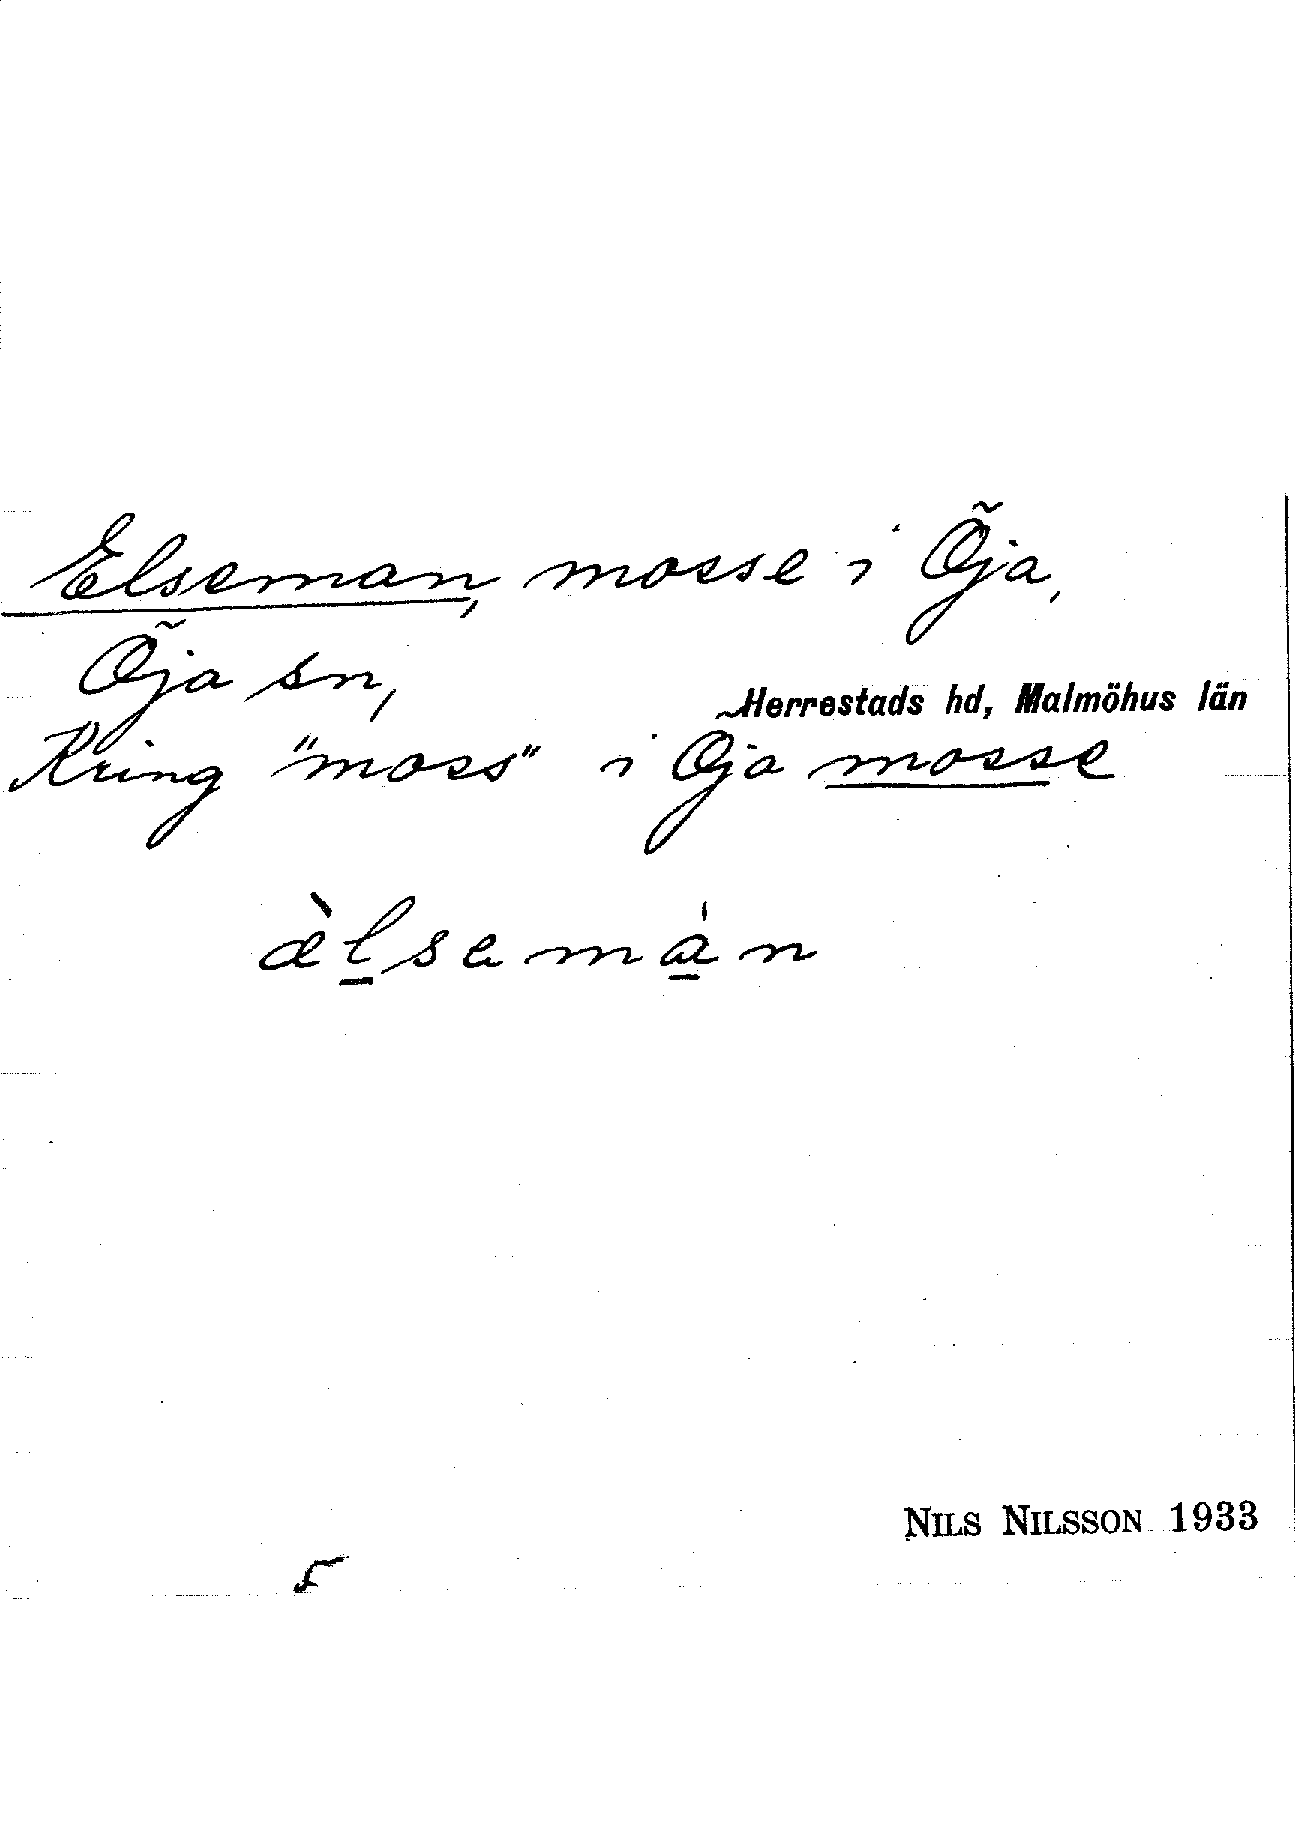 Elseman, mosse i Öja,
Öja sn,
Herrestads hd, Malmöhus län
Kring "moss" i Öja mosse
æ̀l̠sema̠̍n
NILS NILSSON 1933